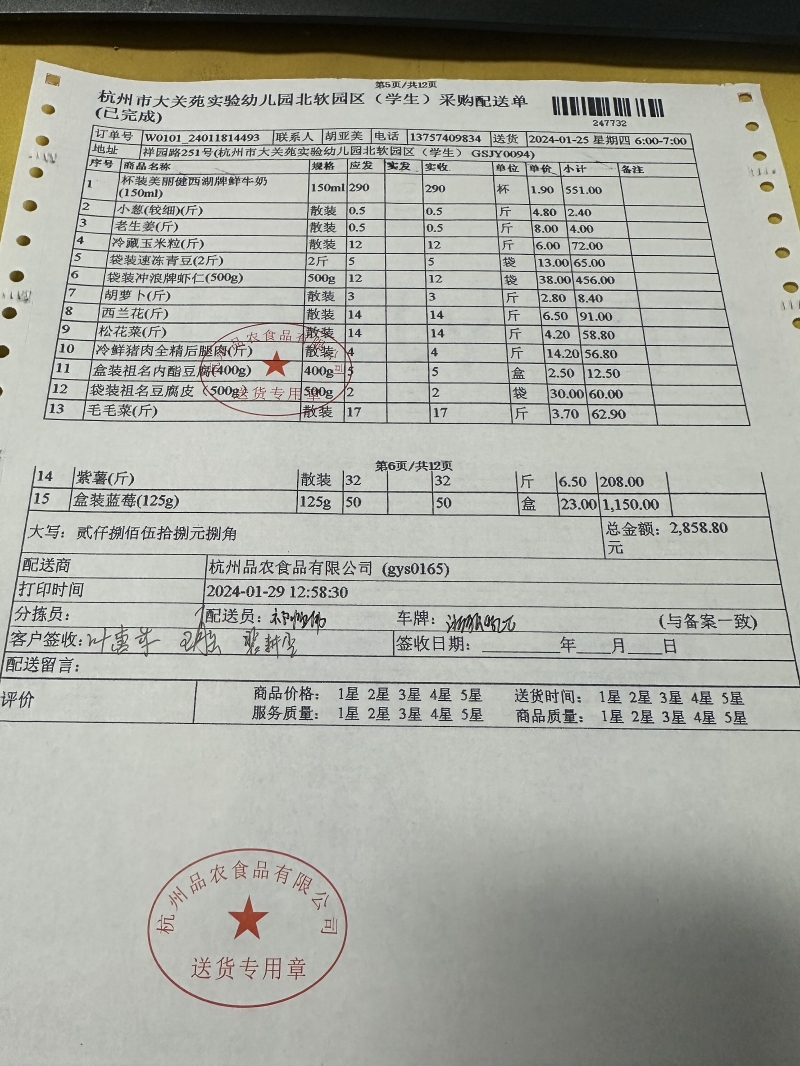 第5页/共12页
杭州市大关苑实验幼儿园北软园区（学生）采购配送单
(已完成)
247732
订单号 W0101_24011814493 联系人 胡亚美 电话 13757409834 送货 2024-01-25 星期四 6:00-7:00
地址 祥园路251号(杭州市大关苑实验幼儿园北软园区（学生）GSJY0094)
序号 商品名称 规格 应发 实发 实收 单位 单价 小计 备注
1 杯装美丽健西湖牌鲜牛奶(150ml) 150ml 290 290 杯 1.90 551.00
2 小葱(较细)(斤) 散装 0.5 0.5 斤 4.80 2.40
3 老生姜(斤) 散装 0.5 0.5 斤 8.00 4.00
4 冷藏玉米粒(斤) 散装 12 12 斤 6.00 72.00
5 袋装速冻青豆(2斤) 2斤 5 5 袋 13.00 65.00
6 袋装冲浪牌虾仁(500g) 500g 12 12 袋 38.00 456.00
7 胡萝卜(斤) 散装 3 3 斤 2.80 8.40
8 西兰花(斤) 散装 14 14 斤 6.50 91.00
9 松花菜(斤) 散装 14 14 斤 4.20 58.80
10 冷鲜猪肉全精后腿肉(斤) 散装 4 4 斤 14.20 56.80
11 盒装祖名内酯豆腐(400g) 400g 5 5 盒 2.50 12.50
12 袋装祖名豆腐皮（500g) 500g 2 2 袋 30.00 60.00
13 毛毛菜(斤) 散装 17 17 斤 3.70 62.90
第6页/共12页
14 紫薯(斤) 散装 32 32 斤 6.50 208.00
15 盒装蓝莓(125g) 125g 50 50 盒 23.00 1,150.00
大写：贰仟捌佰伍拾捌元捌角 总金额：2,858.80
元
配送商 杭州品农食品有限公司 (gys0165)
打印时间 2024-01-29 12:58:30
分拣员： 配送员： 车牌： (与备案一致)
客户签收： 签收日期：________年____月____日
配送留言：
评价 商品价格： 1星 2星 3星 4星 5星 送货时间： 1星 2星 3星 4星 5星
服务质量： 1星 2星 3星 4星 5星 商品质量： 1星 2星 3星 4星 5星
杭州品农食品有限公司
送货专用章
杭州品农食品有限公司
送货专用章